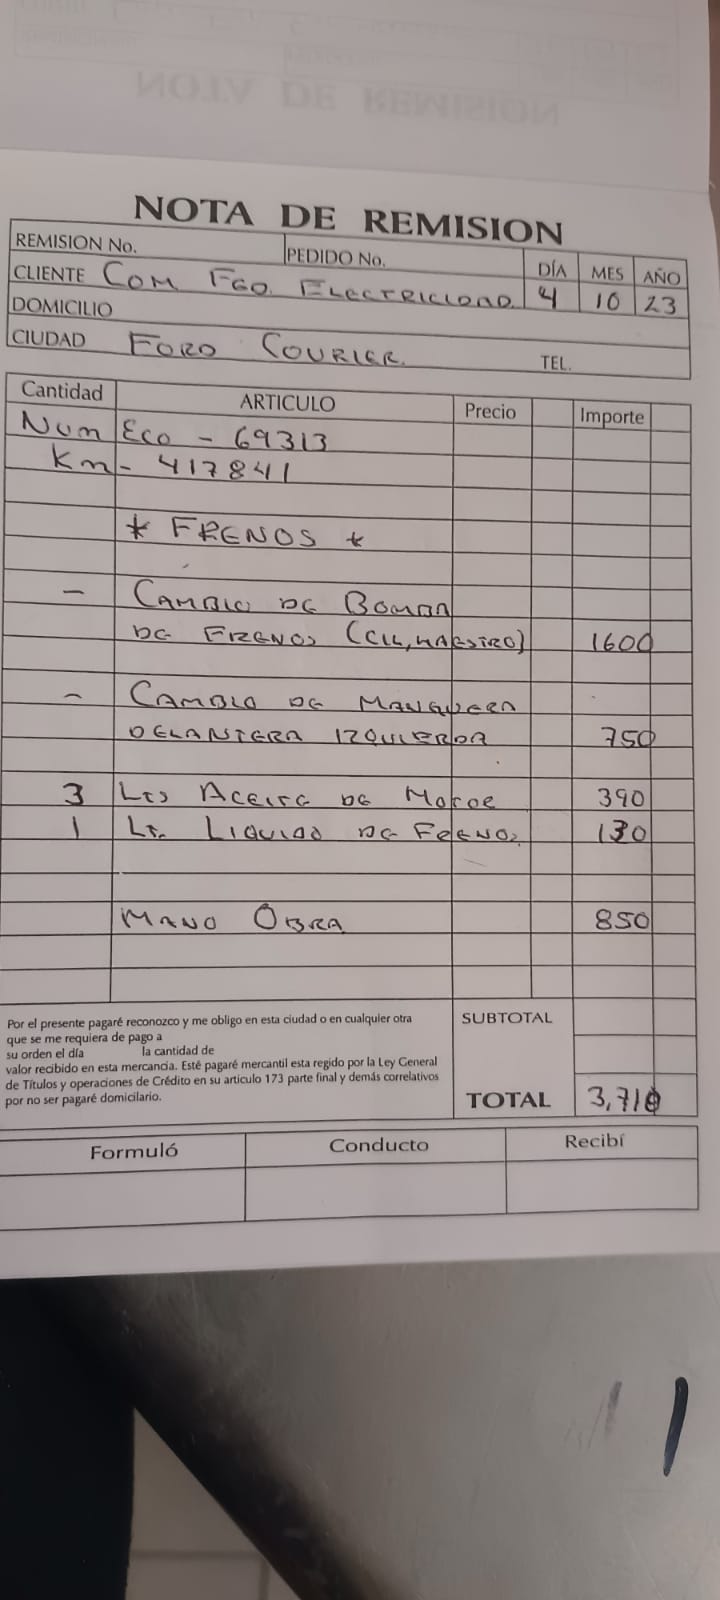 NOTA DE REMISION
REMISION No. PEDIDO No.
DÍA MES AÑO
CLIENTE COM FGO. ELECTRICIDAD 4 10 23
DOMICILIO
CIUDAD FORO COURIER. TEL.
Cantidad ARTICULO Precio Importe
NUM ECO - 69313
Km - 417841
* FRENOS *
- CAMBIO DE BOMBA
DE FRENOS (CIL, MAESTRO) 1600
- CAMBIO DE MANGUERA
DELANTERA IZQUIERDA 750
3 LTS ACEITE DE MOTOR 390
1 LT. LIQUIDO DE FRENOS 130
MANO OBRA 850
Por el presente pagaré reconozco y me obligo en esta ciudad o en cualquier otra
que se me requiera de pago a
su orden el día la cantidad de
valor recibido en esta mercancia. Esté pagaré mercantil esta regido por la Ley General
de Títulos y operaciones de Crédito en su articulo 173 parte final y demás correlativos
por no ser pagaré domicilario.
SUBTOTAL
TOTAL 3,710
Formuló Conducto Recibí